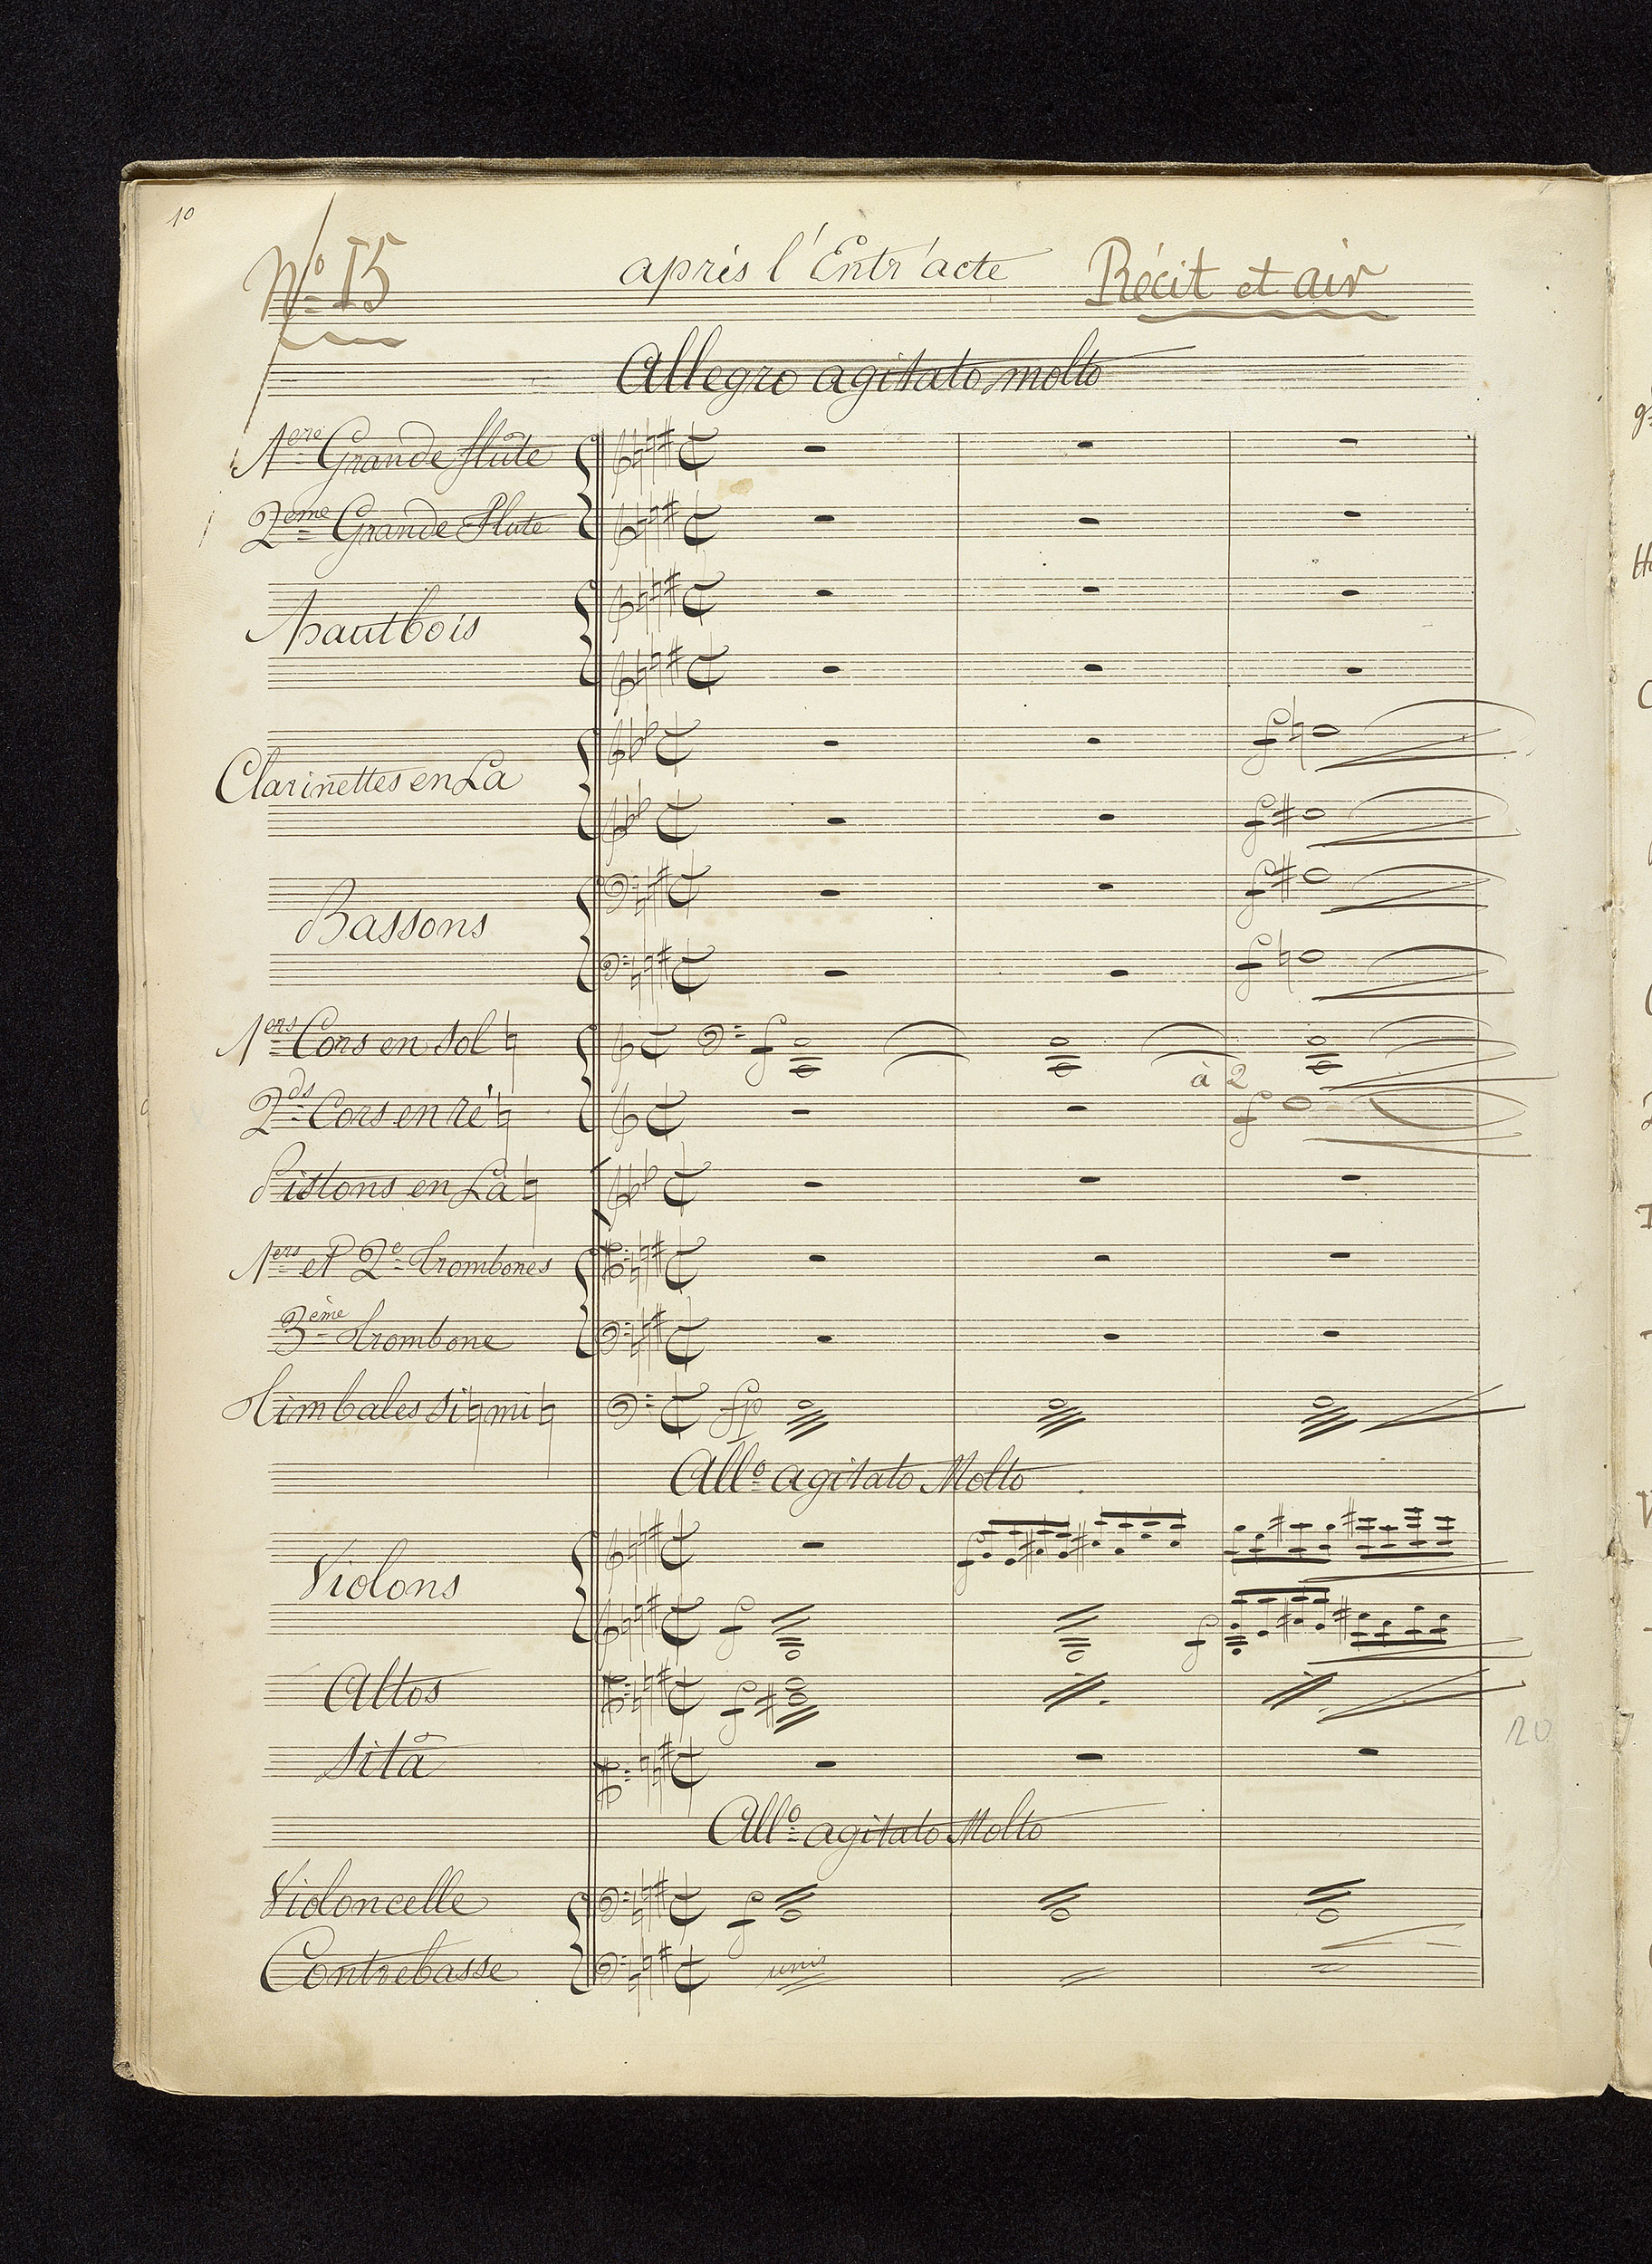 10
Nº 15
après l'Entr'acte
Récit et air
Allegro agitato molto
1ere Grande flûte
2eme Grande flute
hautbois
Clarinettes en La
f
f
Bassons
f
f
1ers Cors en sol ♮
f
à 2
2ds Cors en ré ♮
f
Pistons en La ♮
1ers et 2e Trombones
3ème Trombone
Timbales si ♮ mi ♮
fp
Allº agitato Molto
Violons
f
f
f
Altos
f
20
Sitâ
Allº agitato Molto
Violoncelle
f
Contrebasse
unis